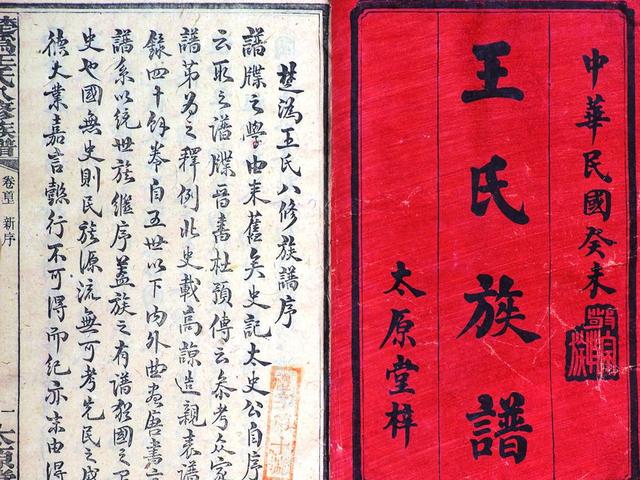 中華民國癸未
王氏族譜
太原堂梓
楚溈王氏八修族譜序
譜牒之學由來舊矣史記太史公自序
云取之譜牒晉書杜預傳云參考眾家
譜第為之釋例北史載高諒造親表譜
錄四十餘卷自五世以下內外曲盡唐書
譜系以統世族繼序蓋族之有譜猶國之
史也國無史則民族源流無可考先民之盛
德大業嘉言懿行不可得而紀亦末由得
王氏八修族譜
卷首 新序
一
太原堂